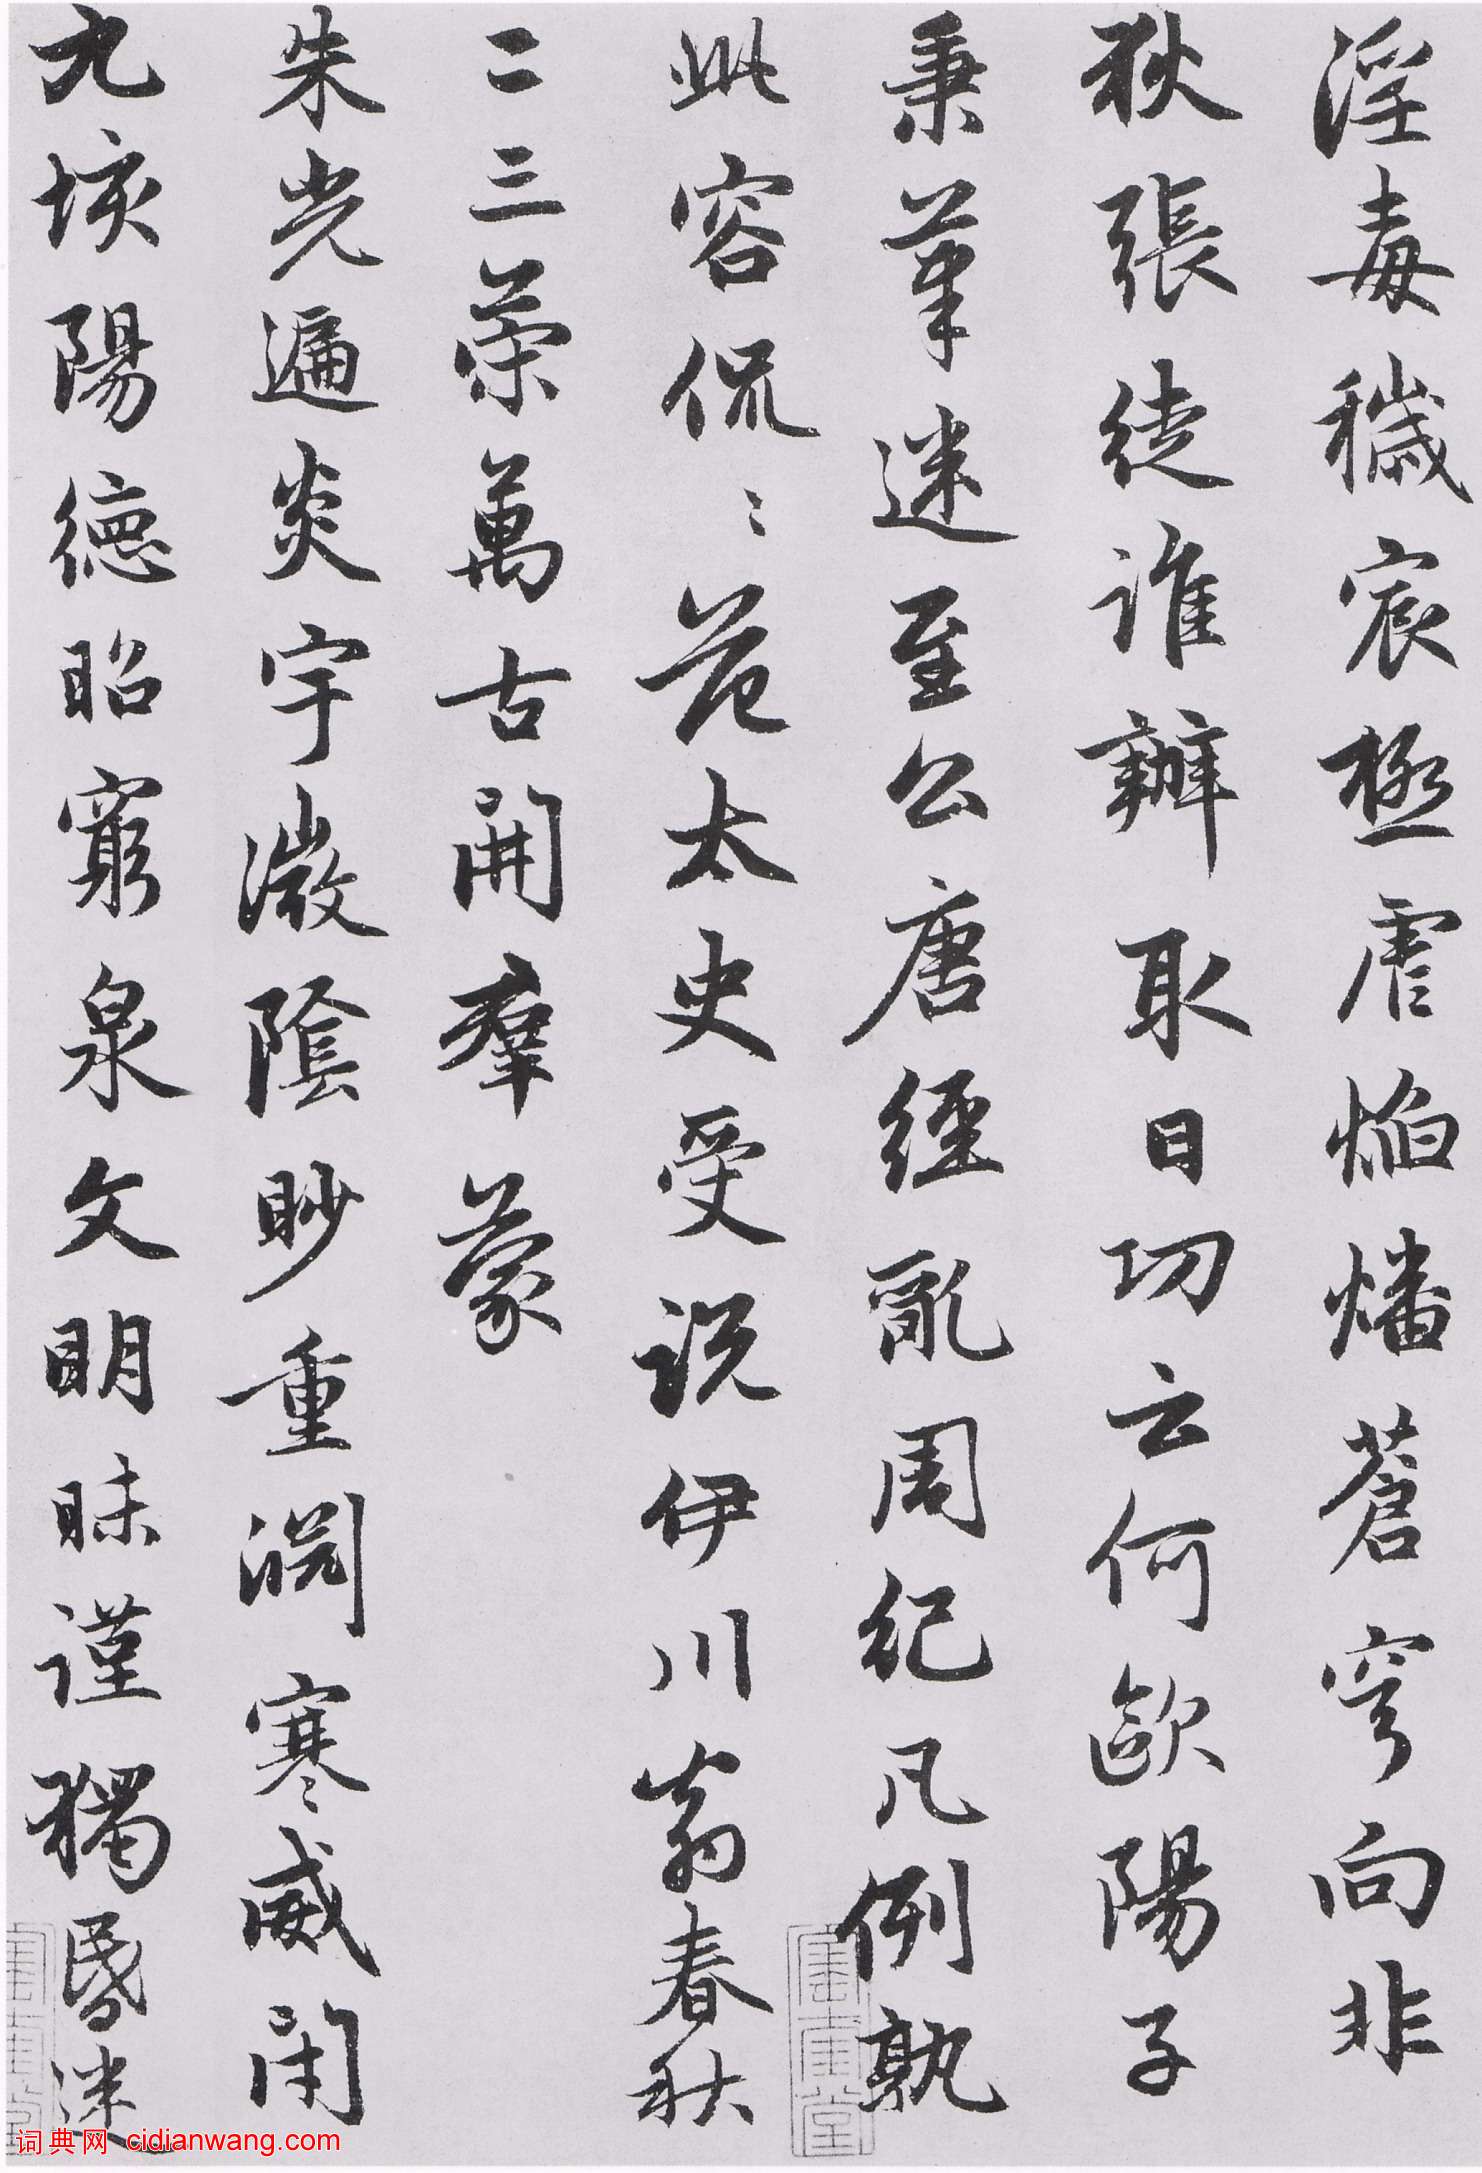 淫毒穢宸極虐焰燔蒼穹向非
狄張徒誰辦取日功云何歐陽子
秉筆迷至公唐經亂周紀凡例孰
此容侃〻范太史受説伊川翁春秋
二三策萬古開羣蒙
朱光遍炎宇微陰眇重淵寒威閉
九垓陽德昭窮泉文明昧謹獨昏迷
词典网 cidianwang.com